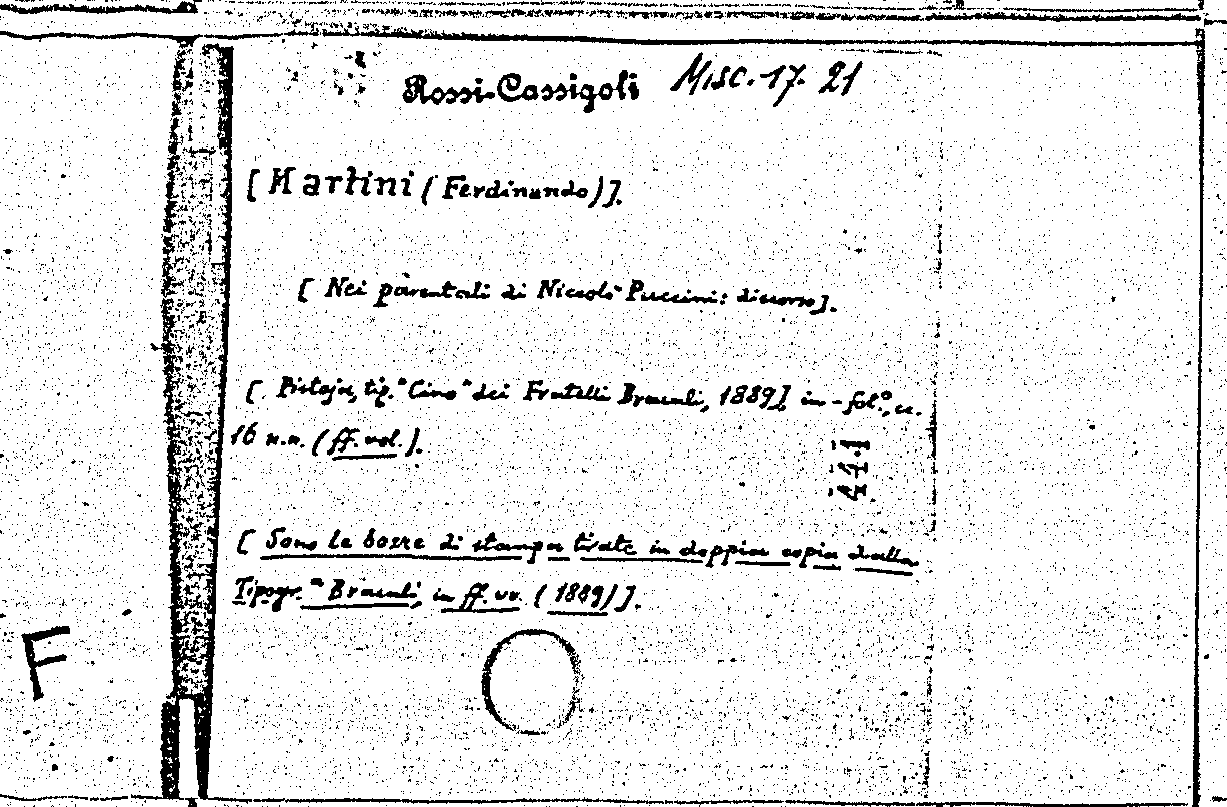 Rossi-Cassigoli Misc. 17. 21
[ Martini (Ferdinando)].
[ Nei parentali di Niccolò Puccini: discorso].
[ Pistoja, tip. "Cino" dei Fratelli Bracali, 1889] in-fol.º, cc.
16 n.n. (ff. vol.).
[ Sono le bozze di stampa tirate in doppia copia dalla
Tipogr.ª Bracali, in ff. vv. (1889)].
F